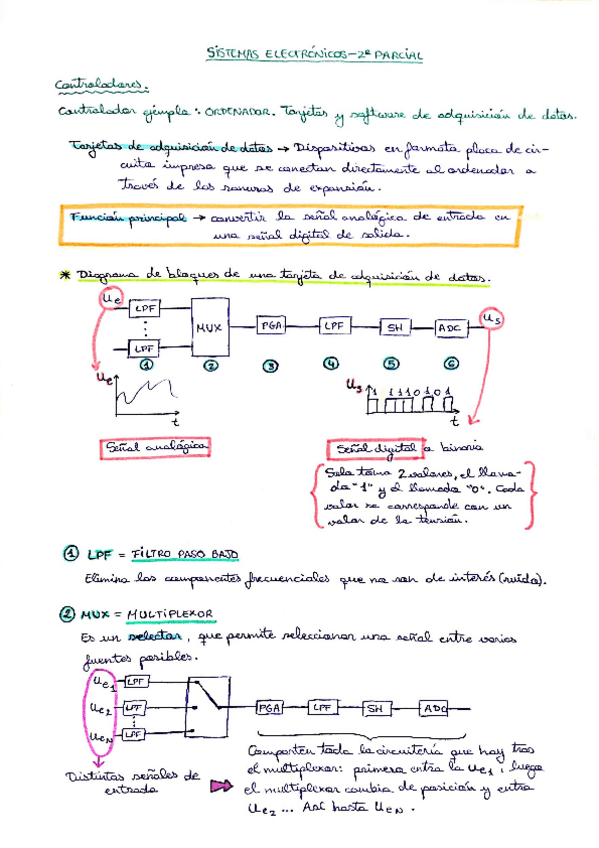 SISTEMAS ELECTRÓNICOS-2º PARCIAL
Controladores.
Controlador ejemplo: ORDENADOR. Tarjetas y software de adquisición de datos.
Tarjetas de adquisición de datos → Dispositivos en formato placa de cir-
cuito impreso que se conectan directamente al ordenador a
través de las ranuras de expansión.
Función principal → convertir la señal analógica de entrada en
una señal digital de salida.
* Diagrama de bloques de una tarjeta de adquisición de datos.
ue LPF MUX PGA LPF SH ADC us
LPF
① ② ③ ④ ⑤ ⑥
ue t
us 1 1 1 1 0 1 0 1 t
Señal analógica
Señal digital o binaria
Solo toma 2 valores, el llama-
do "1" y el llamado "0". Cada
valor se corresponde con un
valor de la tensión.
① LPF = FILTRO PASO BAJO
Elimina las componentes frecuenciales que no son de interés (ruido).
② MUX = MULTIPLEXOR
Es un selector, que permite seleccionar una señal entre varias
fuentes posibles.
ue1 LPF
ue2 LPF PGA LPF SH ADC
ueN LPF
Distintas señales de
entrada
Comparten toda la circuitería que hay tras
el multiplexor: primero entra la ue1, luego
el multiplexor cambia de posición y entra
ue2 ... Así hasta ueN.